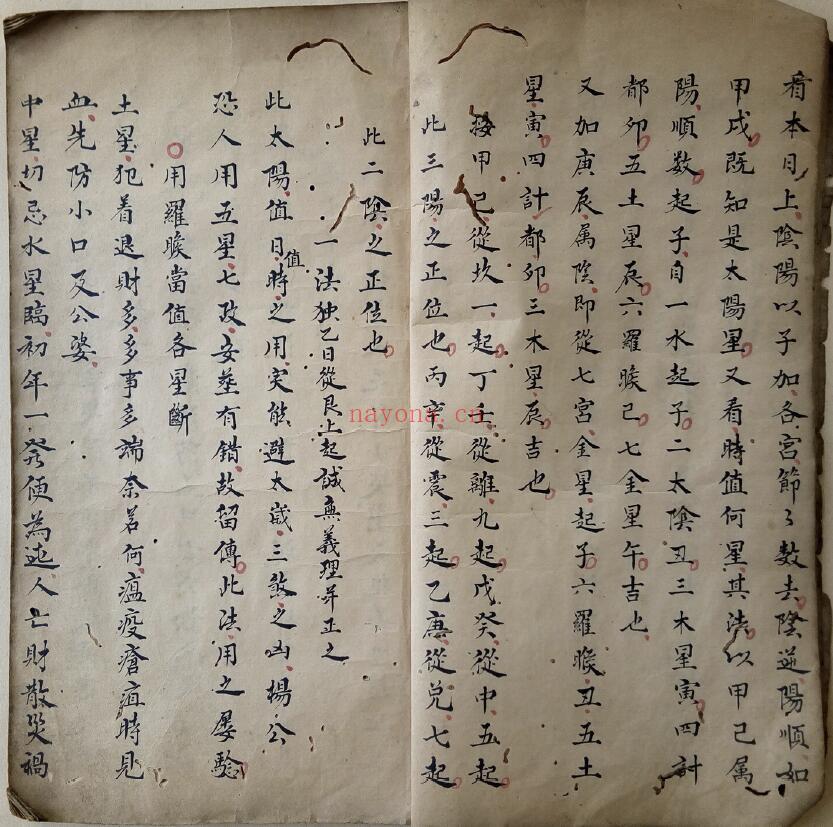 看本日上陰陽以子加各宮節々数去陰逆陽順如
甲戌既知是太陽星又看時值何星其法以甲己属
陽順数起子自一水起子二太陰丑三木星寅四計
都卯五土星辰六羅睺巳七金星午吉也
又加庚辰属陰即從七宮金星起子六羅睺丑五土
星寅四計都卯三木星辰吉也
按甲己從坎一起丁壬從離九起戊癸從中五起
此三陽之正位也丙辛從震三起乙庚從兑七起
此二陰之正位也
一法独乙日從艮上起誠無義理并正之
此太陽值日值時之用实能避太歲三煞之凶楊公
恐人用五星七政安塟有錯故留傳此法用之屡驗
用羅睺當值各星斷
土星犯着退財多多事多端奈若何瘟疫瘡疽時見
血先防小口及公婆
中星切忌水星臨初年一發便為迍人亡財散災禍
nayona.cn